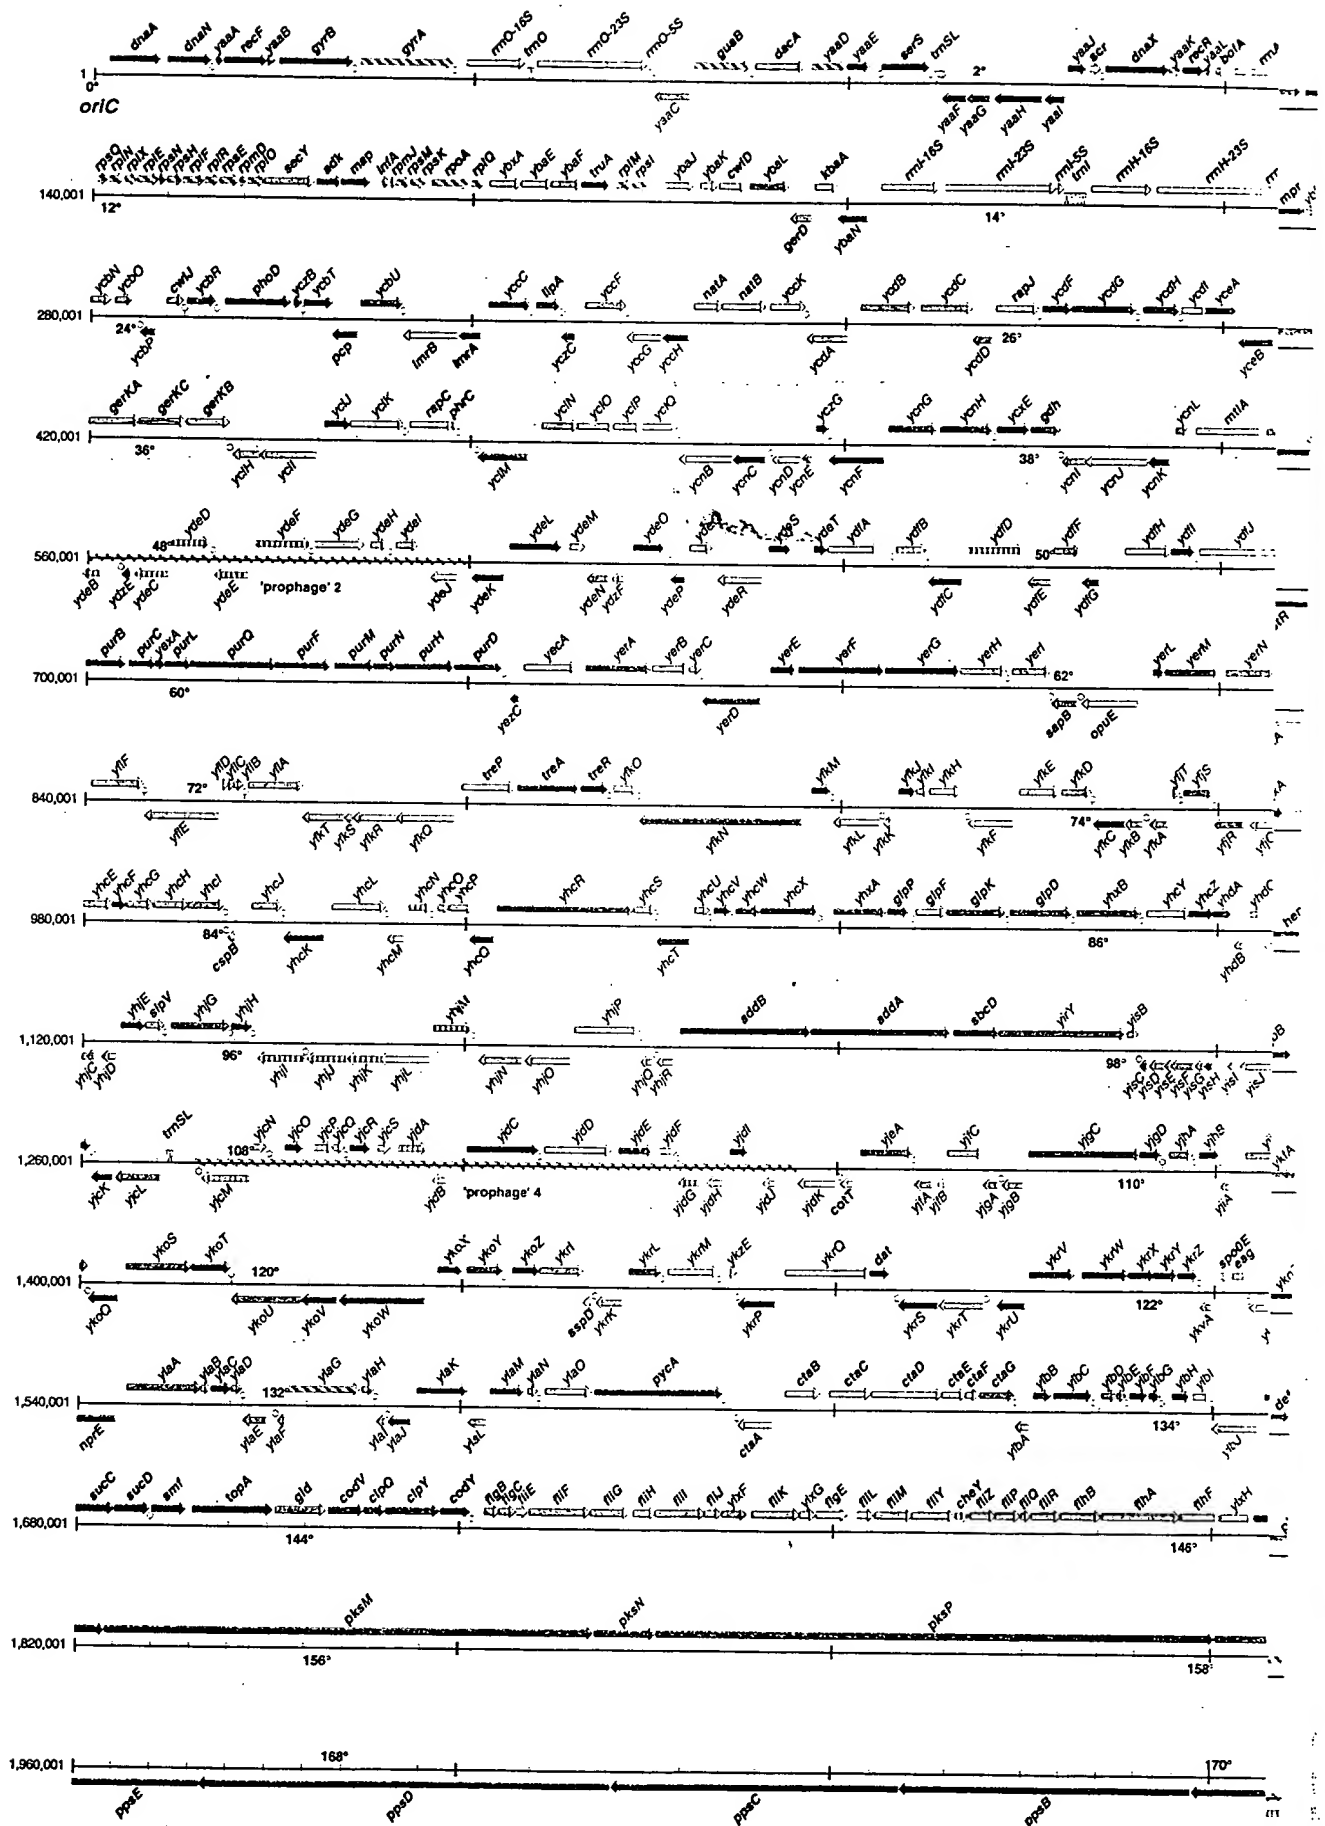 dnaA dnaN yaaA recF yaaB gyrB gyrA rrnO-16S trnO rrnO-23S rrnO-5S guaB dacA yaaD yaaE serS trnSL yaaJ scr dnaX yaaK recR yaaL bofA
1
0° 2°
oriC
yaaC yaaF yaaG yaaH yaaI
rpsQ rplN rplX rplE rpsN rpsH rplF rplR rpsE rpmD rplO secY adk map infA rpmJ rpsM rpsK rpoA rplQ ybxA ybaE ybaF truA rplM rpsI ybaJ ybaK cwlD ybaL kbaA rrnI-16S rrnI-23S rrnI-5S trnI rrnH-16S rrnH-23S
140,001
12° 14°
gerD ybaN mpr
ycbN ycbO cwlJ ycbR phoD yczB ycbT ycbU yccC lipA yccF natA natB yccK ycdB ycdC rapJ ycdF ycdG ycdH ycdI yceA
280,001
24° 26°
ycbP pcp lmrB lmrA yczC yccG yccH ycdA ycdD yceB
gerKA gerKC gerKB yclJ yclK rapC phrC yclN yclO yclP yclQ yczG ycnG ycnH ycxE gdh ycnL mtlA
420,001
36° 38°
yclH yclI yclM ycnB ycnC ycnD ycnE ycnF ycnI ycnJ ycnK
ydeD ydeF ydeG ydeH ydeI ydeL ydeM ydeO ydeS ydeT ydfA ydfB ydfD ydfF ydfH ydfI ydfJ
560,001
48° 50°
ydeB ydzE ydeC ydeE 'prophage' 2 ydeJ ydeK ydeN ydzF ydeP ydeR ydfC ydfE ydfG
purB purC yexA purL purQ purF purM purN purH purD yecA yerA yerB yerC yerE yerF yerG yerH yerI yerL yerM yerN
700,001
60° 62°
yezC yerD sapB opuE
yflF yflD yflC yflB yflA treP treA treR yfkO yfkM yfkJ yfkI yfkH yfkE yfkD yfjT yfjS
840,001
72° 74°
yflE yfkT yfkS yfkR yfkQ yfkN yfkL yfkK yfkF yfkC yfkB yfkA yfjR
yhcE yhcF yhcG yhcH yhcI yhcJ yhcL yhcN yhcO yhcP yhcR yhcS yhcU yhcV yhcW yhcX yhxA glpP glpF glpK glpD yhxB yhcY yhcZ yhdA yhdC
980,001
84° 86°
cspB yhcK yhcM yhcQ yhcT yhdB
yhjE sipV yhjG yhjH yhjM yhjP addB addA sbcD yirY yisB
1,120,001
96° 98°
yhjC yhjD yhjI yhjJ yhjK yhjL yhjN yhjO yhjQ yhjR yisC yisD yisE yisF yisG yisH yisI yisJ
trnSL yjcN yjcO yjcP yjcQ yjcR yjcS yjdA yjdC yjdD yjdE yjdF yjdI yjeA yjfC yjgC yjgD yjhA yjhB
1,260,001
108° 110°
yjcK yjcL yjcM yjdB 'prophage' 4 yjdG yjdH yjdJ yjdK cotT yjfA yjfB yjgA yjgB yjiA
ykoS ykoT ykoX ykoY ykoZ ykrI ykrL ykrM ykzE ykrQ dat ykrV ykrW ykrX ykrY ykrZ spo0E eag
1,400,001
120° 122°
ykoQ ykoU ykoV ykoW sspD ykrK ykrP ykrS ykrT ykrU ykvA
ylaA ylaB ylaC ylaD ylaG ylaH ylaK ylaM ylaN ylaO pycA ctaB ctaC ctaD ctaE ctaF ctaG ylbB ylbC ylbD ylbE ylbF ylbG ylbH ylbI
1,540,001
132° 134°
nprE ylaE ylaF ylaI ylaJ ylaL ctaA ylbA ylbJ
sucC sucD smf topA gid codV clpQ clpY codY flgB flgC fliE fliF fliG fliH fliI fliJ ylxF fliK ylxG flgE fliL fliM fliY cheY fliZ fliP fliQ fliR flhB flhA flhF ylxH
1,680,001
144° 146°
pksM pksN pksP
1,820,001
156° 158°
1,960,001
168° 170°
ppsE ppsD ppsC ppsB